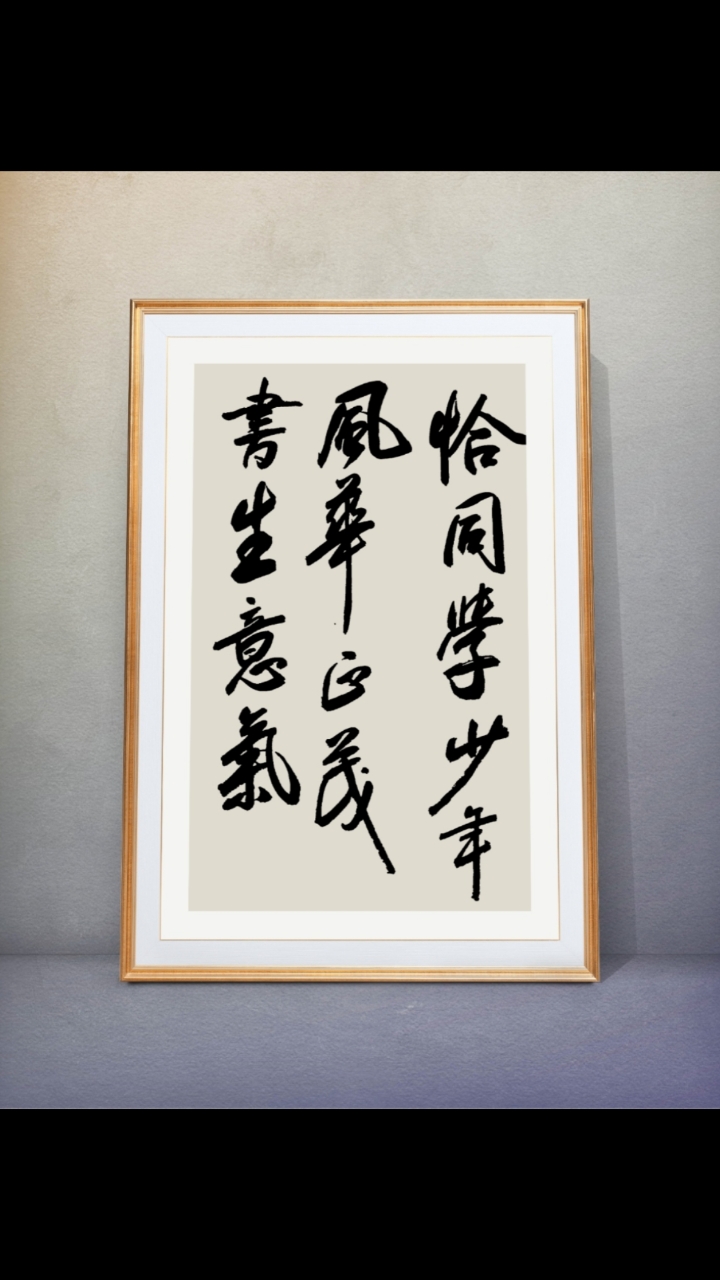 恰同學少年
風華正茂
書生意氣